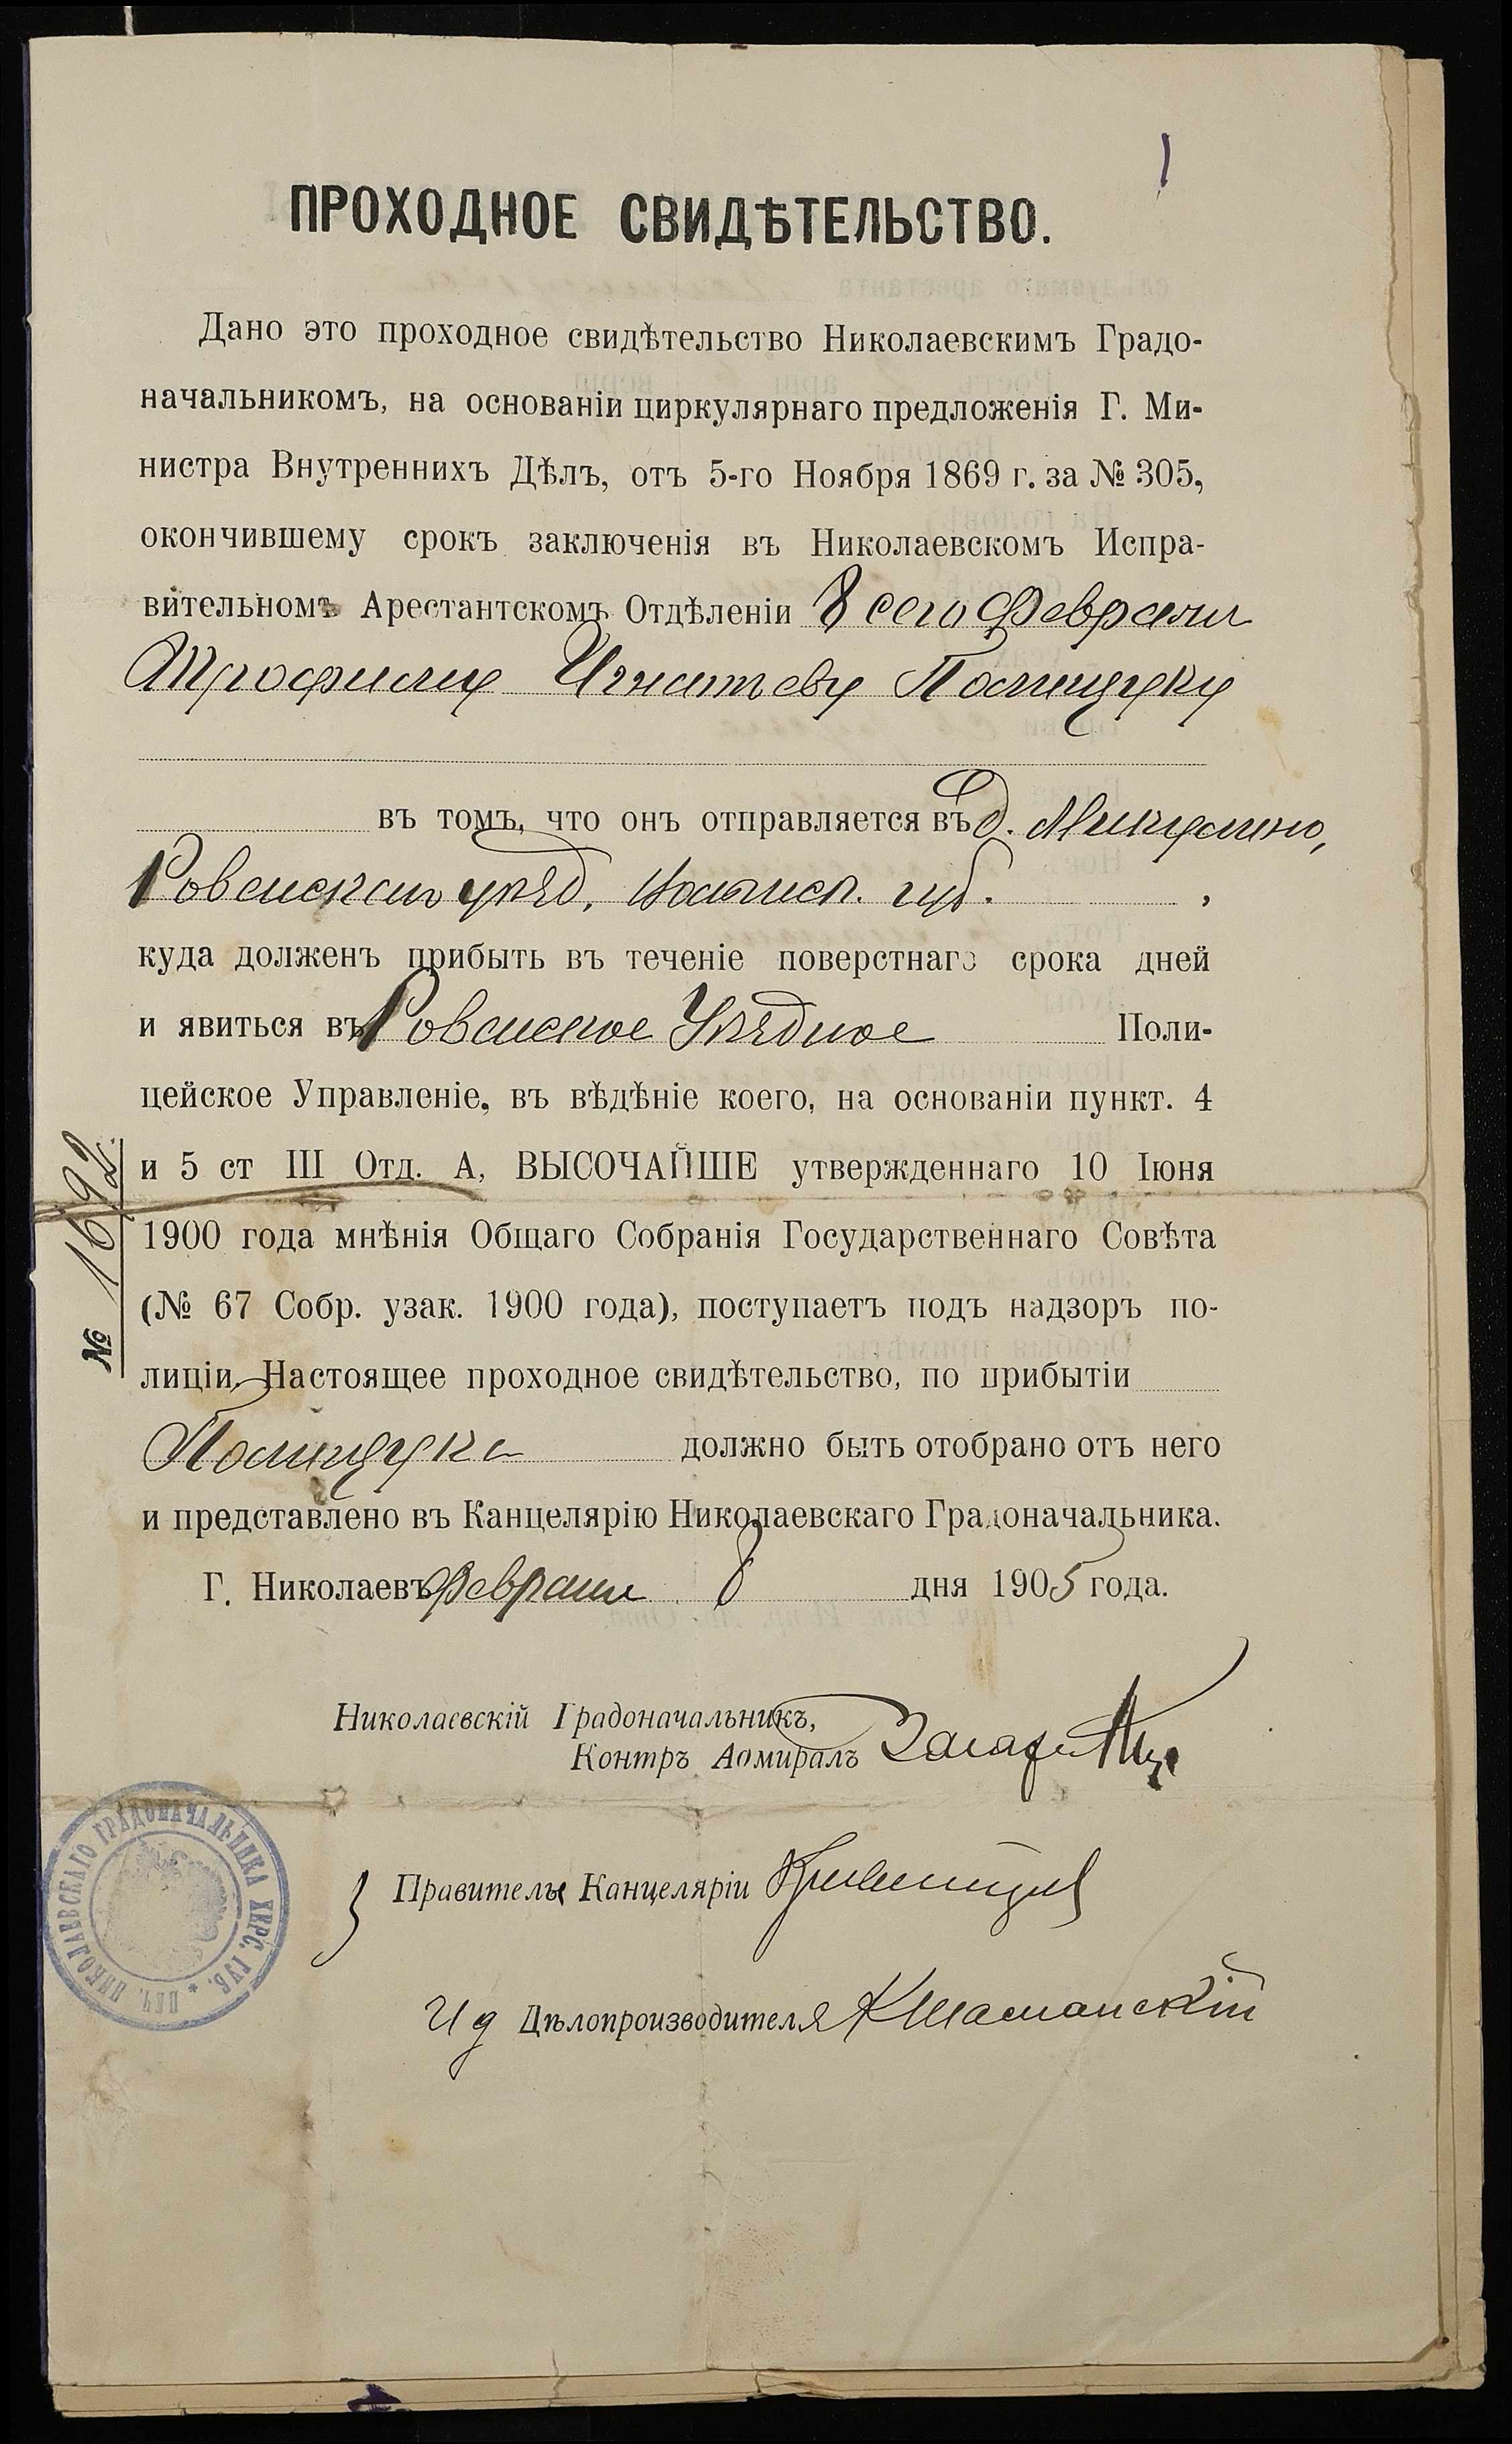 1
ПРОХОДНОЕ СВИДѢТЕЛЬСТВО.
Дано это проходное свидѣтельство Николаевскимъ Градо-
начальникомъ, на основаніи циркулярнаго предложенія Г. Ми-
нистра Внутреннихъ Дѣлъ, отъ 5-го Ноября 1869 г. за № 305,
окончившему срокъ заключенія въ Николаевскомъ Испра-
вительномъ Арестантскомъ Отдѣленіи 8 сего Февраля
Трофиму Игнатьеву Полищуку
въ томъ, что онъ отправляется въ д. Микулино,
Ровенскаго уѣзд, Волынск. губ. ,
куда долженъ прибыть въ теченіе поверстнаго срока дней
и явиться въ Ровенское Уѣздное Поли-
цейское Управленіе, въ вѣдѣніе коего, на основаніи пункт. 4
и 5 ст III Отд. А, ВЫСОЧАЙШЕ утвержденнаго 10 Іюня
1900 года мнѣнія Общаго Собранія Государственнаго Совѣта
(№ 67 Собр. узак. 1900 года), поступаетъ подъ надзоръ по-
лиціи. Настоящее проходное свидѣтельство, по прибытіи
Полищука должно быть отобрано отъ него
и представлено въ Канцелярію Николаевскаго Градоначальника.
Г. Николаевъ Февраля 8 дня 1905 года.
№ 1692
Николаевскій Градоначальникъ,
Контръ Адмиралъ
Правитель Канцеляріи
И д Дѣлопроизводителя КШаманскій
ПЕЧ. НИКОЛАЕВСКАГО ГРАДОНАЧАЛЬНИКА ХЕРС. ГУБ. *